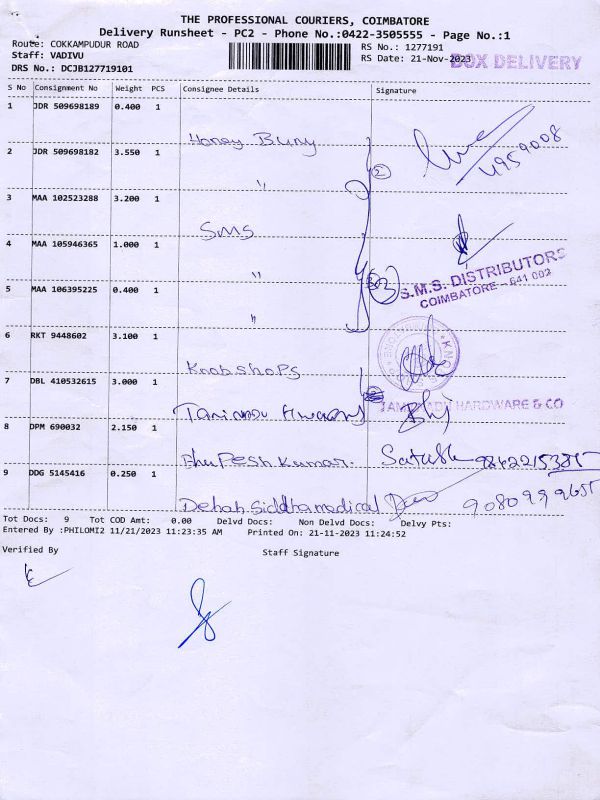 THE PROFESSIONAL COURIERS, COIMBATORE
Delivery Runsheet - PC2 - Phone No.:0422-3505555 - Page No.:1
Route: COKKAMPUDUR ROAD
RS No.: 1277191
Staff: VADIVU
RS Date: 21-Nov-2023
BOX DELIVERY
DRS No.: DCJB127719101
S No Consignment No Weight PCS Consignee Details Signature
1 JDR 509698189 0.400 1
Honey Buny
4959008
2 JDR 509698182 3.550 1
"
3 MAA 102523288 3.200 1
SMS
4 MAA 105946365 1.000 1
"
S.M.S. DISTRIBUTORS
COIMBATORE - 641 002
5 MAA 106395225 0.400 1
"
6 RKT 9448602 3.100 1
Knobshops
7 DBL 410532615 3.000 1
HARDWARE & CO
8 DPM 690032 2.150 1
Bhupesh Kumar.
9 DDG 5145416 0.250 1
Dehah Siddha medical
Tot Docs: 9 Tot COD Amt: 0.00 Delvd Docs: Non Delvd Docs: Delvy Pts:
Entered By :PHILOMI2 11/21/2023 11:23:35 AM Printed On: 21-11-2023 11:24:52
Verified By
Staff Signature